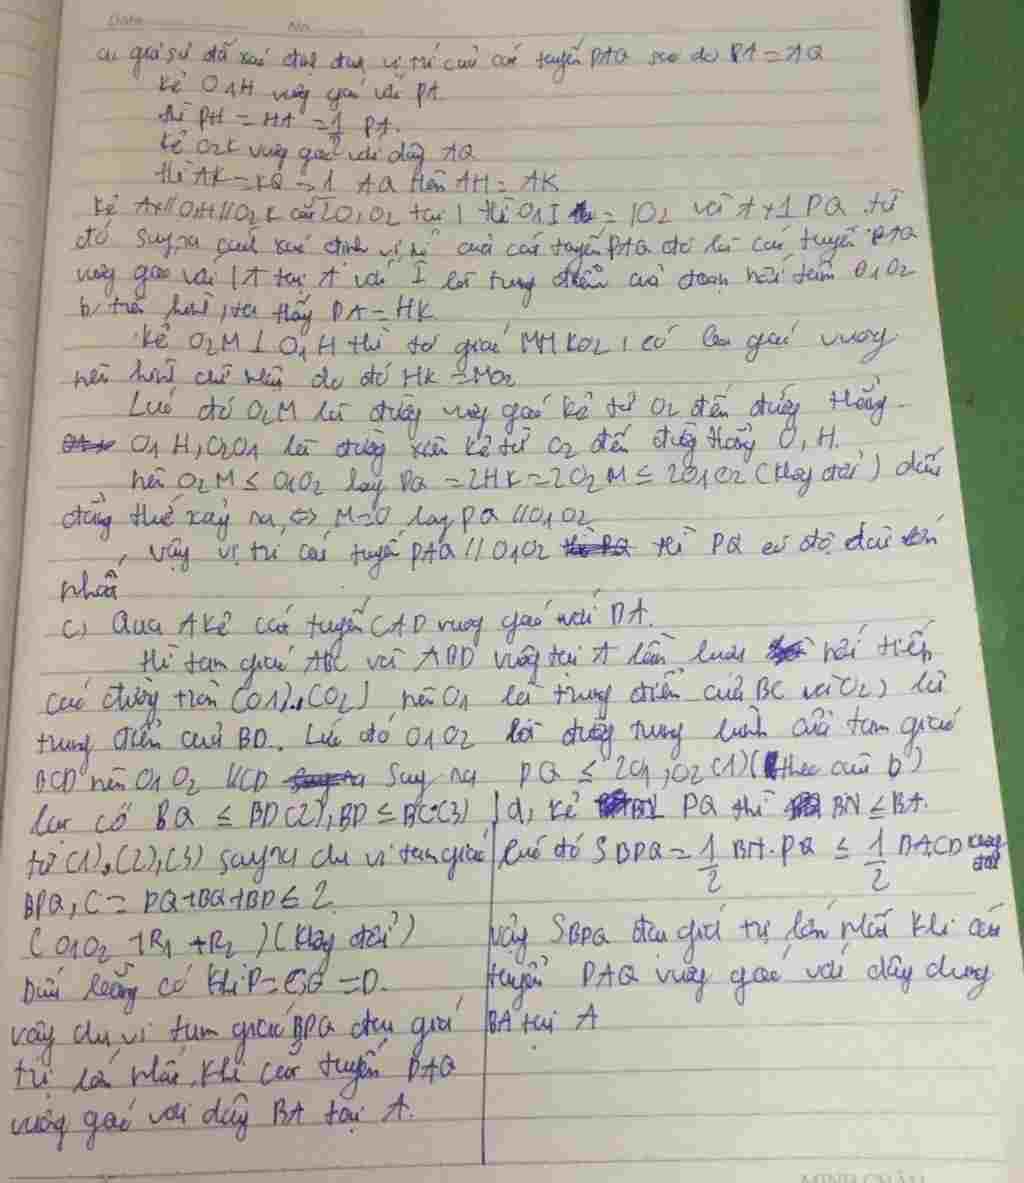 Date No.
a, giả sử đã xác định được vị trí của cát tuyến PAQ sao do PA = AQ
Kẻ O1H vuông góc với PA.
thì PH = HA = 1/2 PA.
Kẻ O2K vuông góc với dây AQ
thì AK = KQ = 1 AQ nên AH = AK
Kẻ Ax // O1H // O2K cắt O1O2 tại I thì O1I = IO2 và Ax ⊥ PQ. từ
đó suy ra cách xác định vị trí của cát tuyến PAQ đó là cát tuyến PAQ
vuông góc với IA tại A với I là trung điểm của đoạn nối tâm O1O2
b, trên hình, ta thấy PA = HK.
Kẻ O2M ⊥ O1H thì tứ giác MHKO2, có ba góc vuông
nên hình chữ nhật do đó HK = MO2
Lúc đó O2M là đường vuông góc kẻ từ O2 đến đường thẳng
O1H, O2O1 là đường xiên kẻ từ O2 đến đường thẳng O1H.
nên O2M ≤ O1O2 hay PQ = 2HK = 2O2M ≤ 2O1O2 (không đổi) dấu
đẳng thức xảy ra <=> M=O hay PQ // O1O2
vậy vị trí cát tuyến PAQ // O1O2 thì PQ có độ dài lớn
nhất
c) Qua A kẻ cát tuyến CAD vuông góc với BA.
thì tam giác ABC và ABD vuông tại A lần lượt nội tiếp
các đường tròn (O1), (O2) nên O1 là trung điểm của BC và O2) là
trung điểm của BD. Lúc đó O1O2 là đường trung bình của tam giác
BCD nên O1O2 //CD suy ra PQ ≤ 2O1O2 (1) (theo câu b)
lại có BQ ≤ BD (2), BP ≤ BC (3)
từ (1), (2), (3) suy ra chu vi tam giác
BPQ, C = PQ+BQ+BP ≤ 2
(O1O2 +R1 +R2) (không đổi)
Dấu bằng có khi P=C, Q=D.
vậy chu vi tam giác BPQ đạt giá
trị lớn nhất khi cát tuyến PAQ
vuông góc với dây BA tại A.
d, kẻ PQ thì BN ≤ BA.
Lúc đó SBPQ = 1/2 BN.PQ ≤ 1/2 BA.CD không đổi
vậy SBPQ đạt giá trị lớn nhất khi cát
tuyến PAQ vuông góc với dây chung
BA tại A
MINH CHÂU